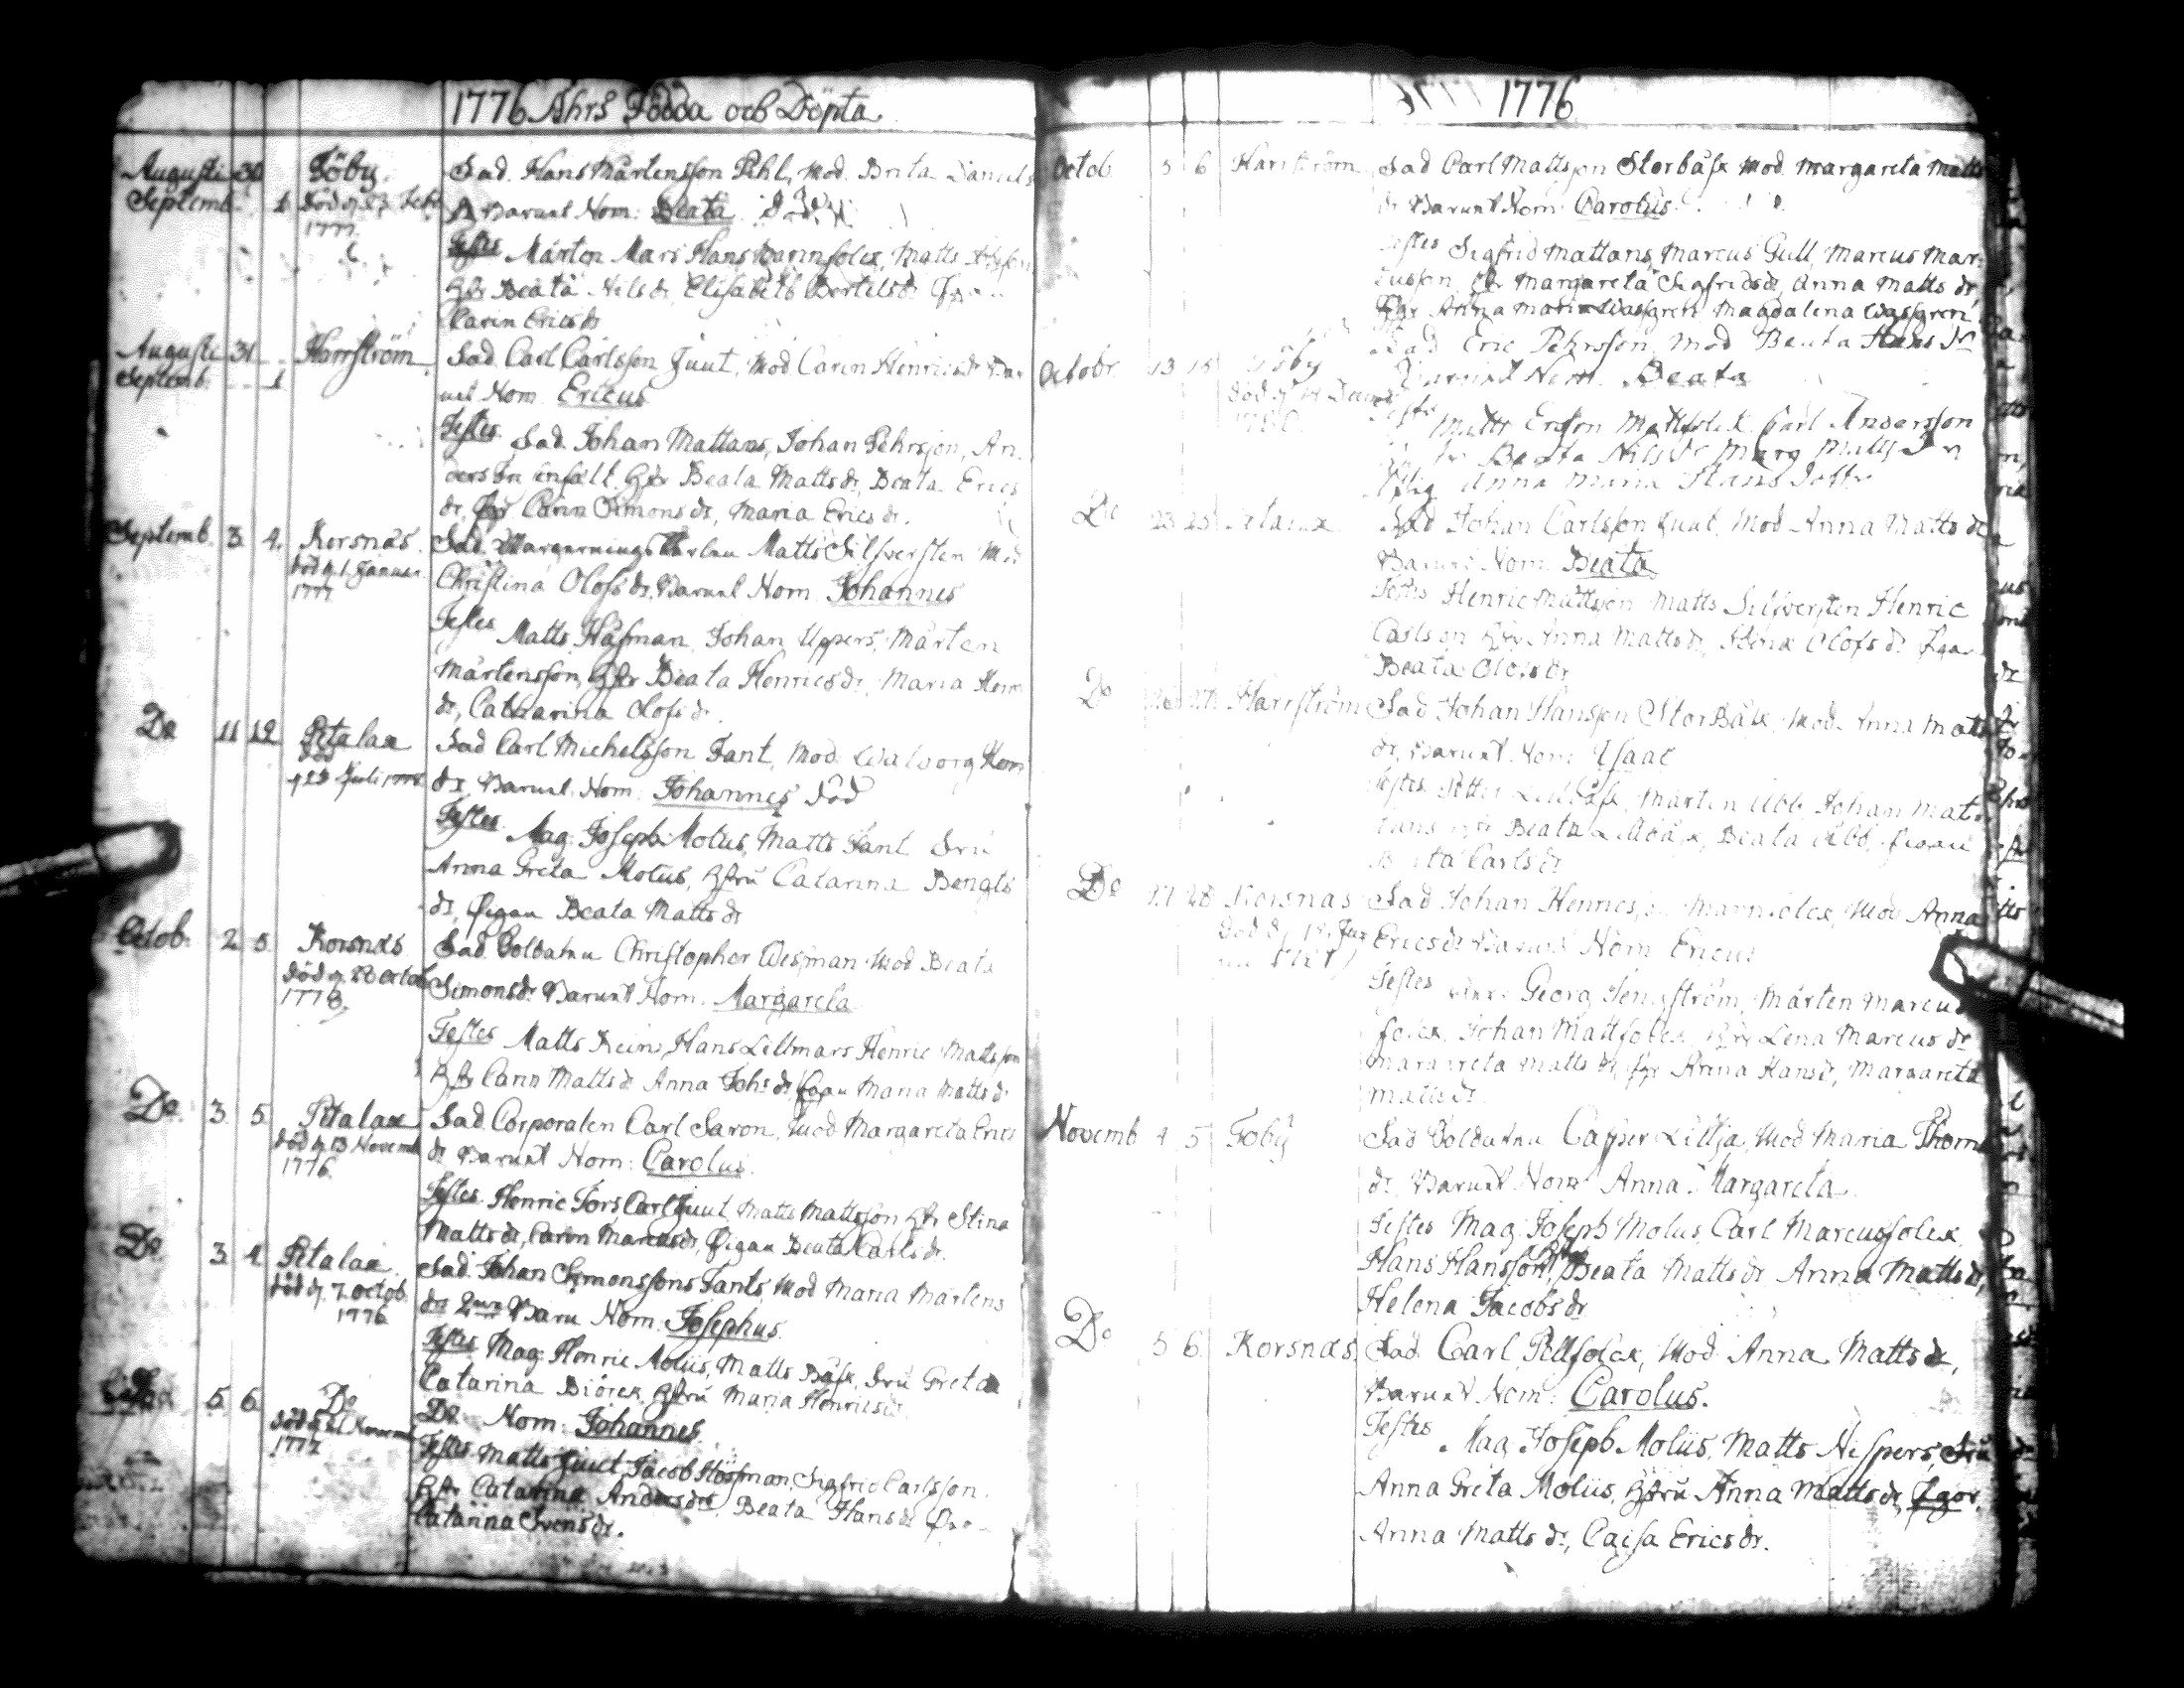 1776 Åhrs Födda och Döpta.
Augusti 30 Töby. Fad. Hans Mårtensson Pehl, Mod. Brita Daniels
Septemb. 1 död d. 23 Febr dr Barnet Nom: Beata. Död.
1777.
Testes Mårten Mars Hans Matts
Hstr Beata Nils dr, Elisabeth Bertels dr
Carin Erics dr
Augusti 31 Harrström. Fad. Carl Carlsson Juut, Mod Carin Henrics dr Bar
Septemb. 1 net Nom. Ericus
Testes. Fad. Johan Mattans, Johan Pehrsson, An
ders Hstr Beata Matts dr, Beata Erics
dr, Carin Simons dr, Maria Erics dr.
Septemb. 3. 4. Korsnäs. Fad. Matts Silfversten Mod
död d. 1. Januar. Christina Olofs dr. Barnet Nom. Johannes
1777.
Testes Matts Håfman, Johan Uppers, Mårten
Mårtensson, Hstr Beata Henrics dr, Maria Henr
dr, Catharina Olofs dr.
Do 11 12 Petalax Fad Carl Michelsson Fant, Mod. Walborg Henr
död
d 23 Juli 1778 dr, Barnet Nom: Johannes död
Testes. Mag. Joseph Molius, Matts Fant Fru
Anna Greta Molius, Hstru Catarina Bengts
dr, Pigan Beata Matts dr
Octob. 2 5. Korsnäs Fad. Soldaten Christopher Wesman Mod Beata
död d. 28 Octob Simons dr. Barnet Nom. Margareta
1778.
Testes Matts Rein, Hans Lillmars Henric Mattsson
Hstr Carin Matts dr Anna Johs dr, Pigan Maria Matts dr
Do. 3. 5 Petalax Fad. Corporalen Carl Saron, Mod Margareta Erics
död d. 13 Novemb dr Barnet Nom: Carolus.
1776.
Testes. Henric Fors Carl Juut, Matts Mattsson Hstr Stina
Matts dr, Carin Marcus dr, Pigan Beata Carls dr.
Do 3. 4 Petalax Fad. Johan Simonssons Fants, Mod Maria Mårtens
död d. 7. Octob. dr Barn Nom: Josephus.
1776
Testes Mag. Henric Molius, Matts Båsk, Fru Greta
Catarina Biörck, Hstru Maria Henrics dr.
5. 6. Do Do. Nom: Johannes.
1777 Testes Matts Juut, Jacob Hofman, Sigfrid Carlsson.
Hstr Catarina Anders dr, Beata Hans dr
Catarina Svens dr.
1776
Octob 5 6 Harrström Fad Carl Mattsson Storbåsk Mod Margareta Matts
dr Barnet Nom Carolus.
Testes Sigfrid Mattans, Marcus Gull, Marcus Mar
cusson, Hstr Margareta Sigfrids dr, Anna Matts dr,
Pgr Anna Maria Wassgren Magdalena Wassgren
Octobr. 13 15 Töby Fad Eric Pehrsson, Mod Beata Hans dr
Barnet Nom. Beata
Testes Matts Ersson Mattfolck Carl Andersson
Hstr Beata Nils dr Marg Matts dr
Pig Anna Maria Hans Dotter
Do 23 25 Petalax Fad Johan Carlsson Juut, Mod Anna Matts dr
Barnet Nom Beata
Testes Henric Mattsson Matts Silfversten Henric
Carlsson Hstr Anna Matts dr, Stina Olofs dr Pigan
Beata Olofs dr
Do 26 27 Harrström Fad Johan Hansson StorBåsk Mod. Anna Matts
dr. Barnet Nom Isaac
Testes Petter Lillbåsk, Mårten Abb, Johan Mat
tans Hstr Beata Lillbåsk, Beata Abb, Pigan
Carls dr
Do 27 28 Korsnäs Fad Johan Marnfolck, Mod Anna
Erics dr Barnet Nom Ericus
Testes Georg Tengström, Mårten Marcus
folck, Johan Mattfolck, Hstr Lena Marcus dr
Margareta Matts dr, Pgr Anna Hans dr, Margareta
Matts dr
Novemb 4 5 Töby Fad Soldaten Casper Lillja, Mod Maria Thom
dr. Barnet Nom Anna Margareta
Testes Mag. Joseph Molius, Carl Marcusfolck,
Hans Hansson, Hstr Beata Matts dr Anna Matts dr,
Helena Jacobs dr
Do 5 6. Korsnäs Fad. Carl Pellfolck, Mod Anna Matts dr,
Barnet Nom: Carolus.
Testes Mag. Joseph Molius, Matts Nispers, Fru
Anna Greta Molius, Hstru Anna Matts dr, Pgor.
Anna Matts dr, Caisa Erics dr.